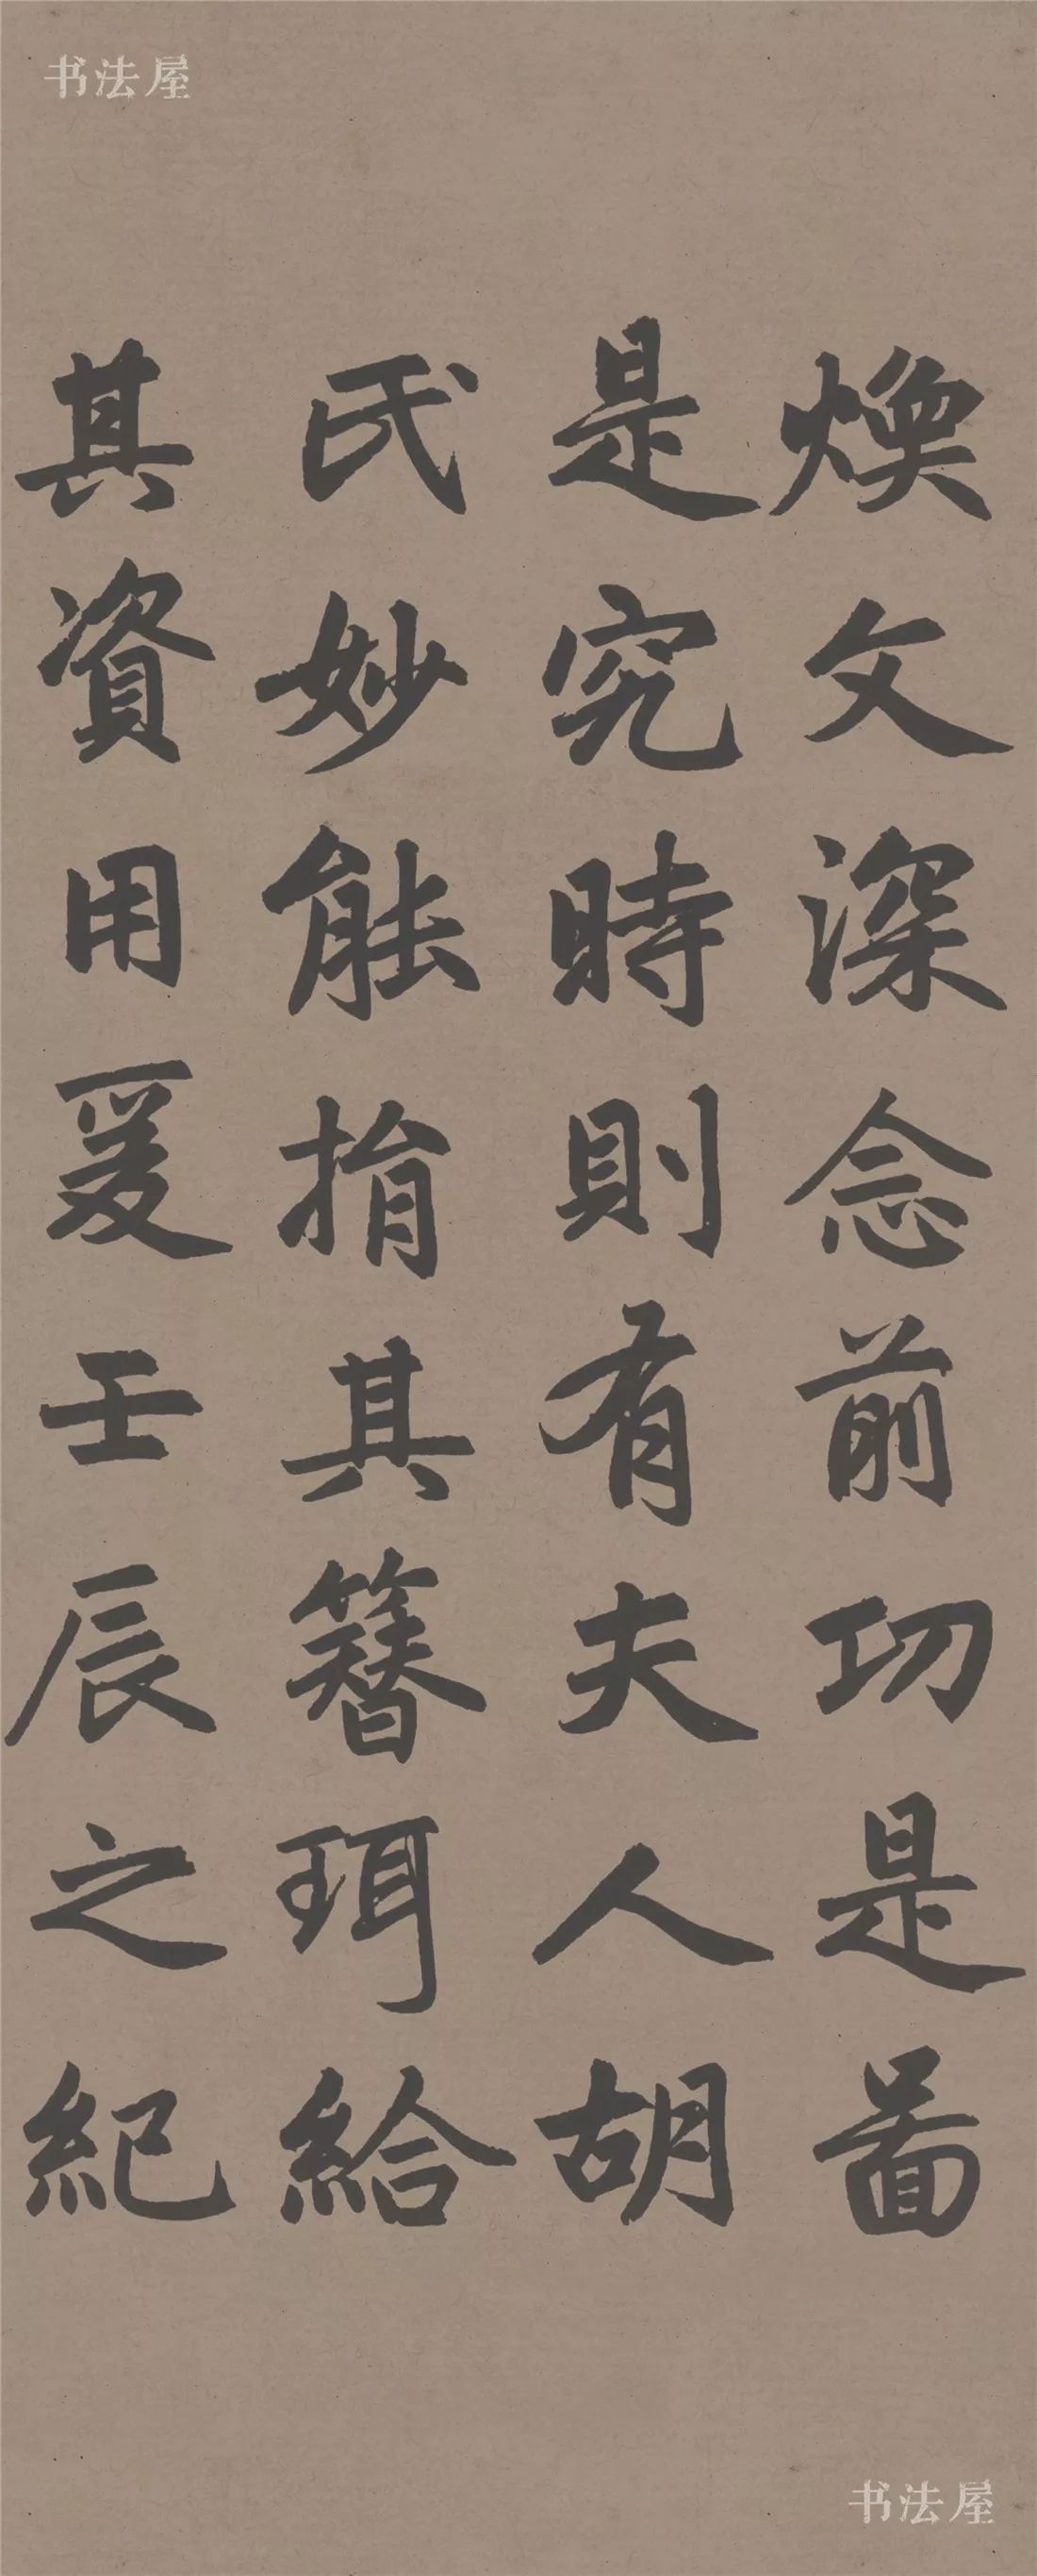 书法屋
煥文深念前功是啚
是究時則有夫人胡
氏妙能捐其簮珥給
其資用爰壬辰之紀
书法屋